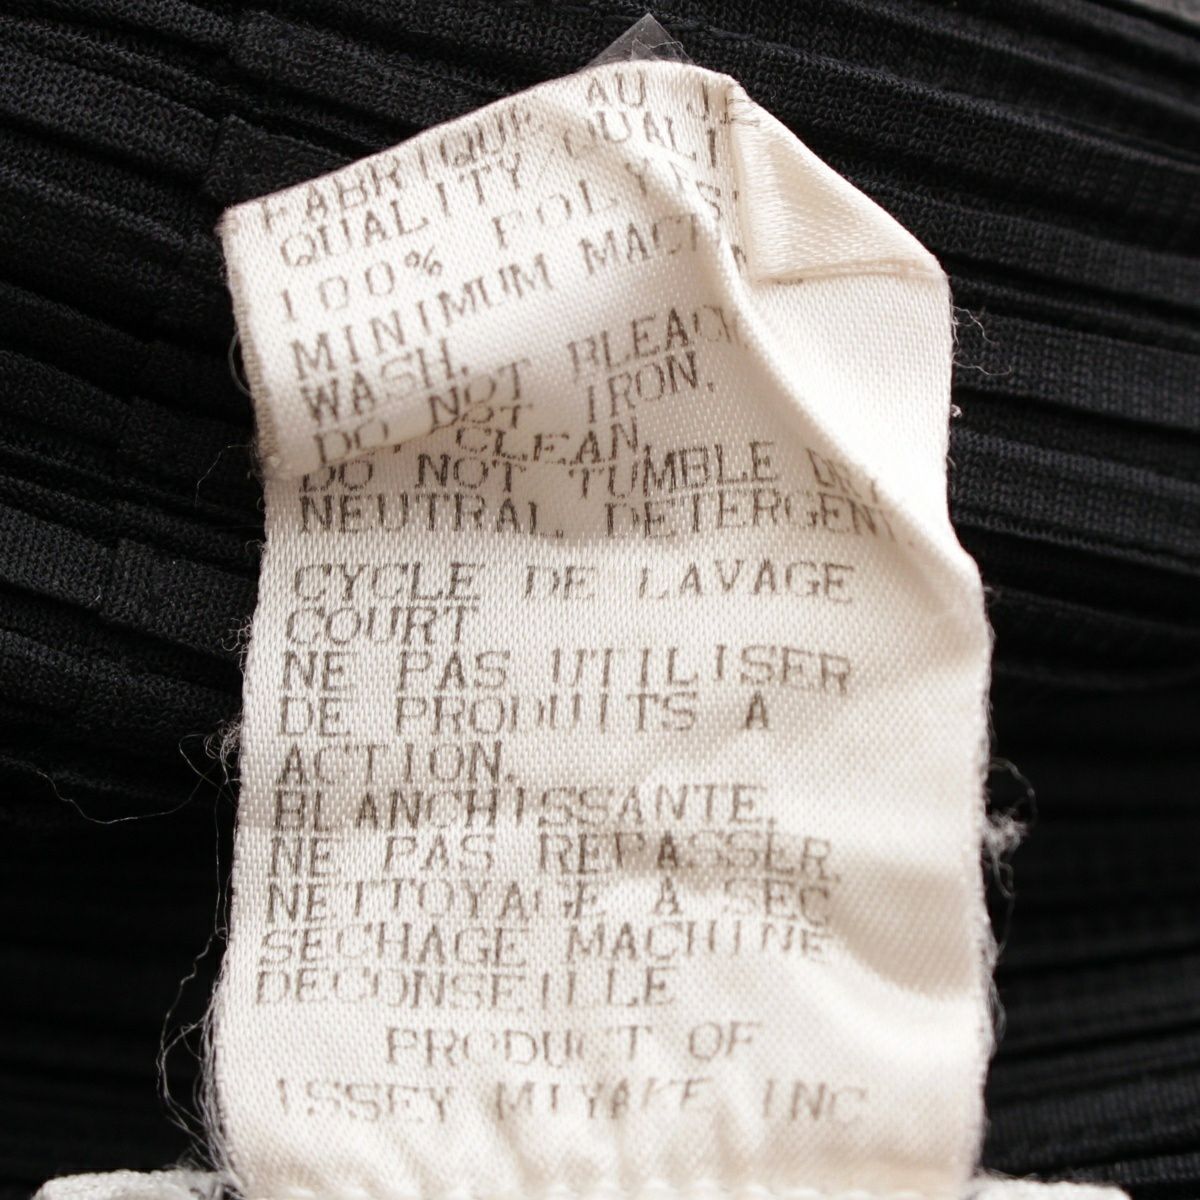 FABRIQUE AU
QUALITY/QUALI
100% POLYES
MINIMUM MACHIN
WASH.
DO NOT BLEACH
DO NOT IRON.
CLEAN.
DO NOT TUMBLE DRY
NEUTRAL DETERGENT.
CYCLE DE LAVAGE
COURT
NE PAS UTILISER
DE PRODUITS A
ACTION.
BLANCHISSANTE.
NE PAS REPASSER.
NETTOYAGE A SEC
SECHAGE MACHINE
DECONSEILLE
PRODUCT OF
ISSEY MIYAKE INC